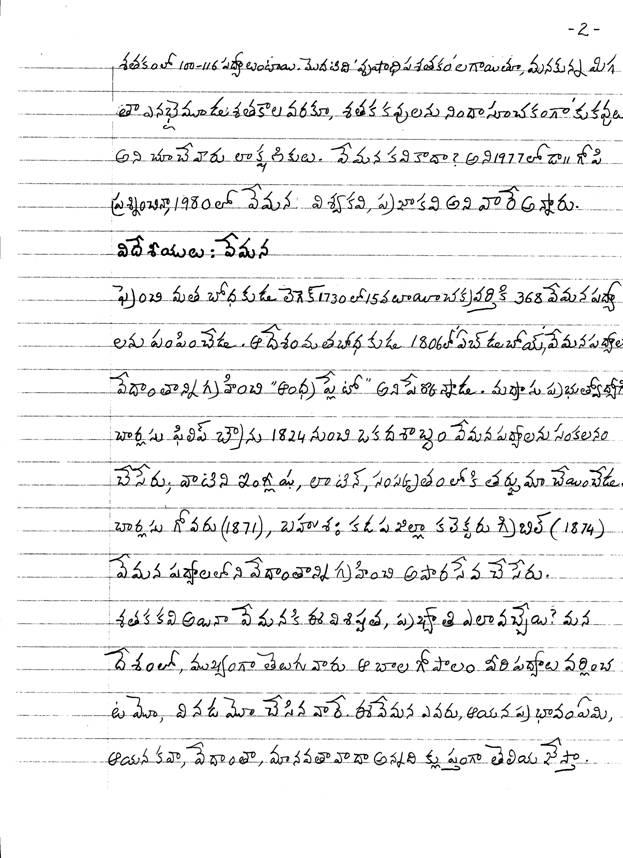 -2-
శతకంలో 100-116 పద్యాలుంటాయి. మొదటిది 'వృషాధిప శతకం'లగాయితూ, మనకున్న మిగ
తా ఎనభైమూడు శతకాల వరకూ, శతకకవులను నిందాసూచకంగా 'కుకవులు
అని చూచేవారు లాక్షణికులు. వేమన కవి కాదా? అని 1977లో డా॥ గోపి
ప్రశ్నించినా, 1980లో వేమన విశ్వకవి, ప్రజాకవి అని వారే అన్నారు.
విదేశీయులు: వేమన
ఫ్రెంచి మత బోధకుడు లెగెక్ 1730లో 15వ లూయీ చక్రవర్తికి 368 వేమన పద్యా
లను పంపించేడు. ఆదేశం మతబోధకుడు 1806లో ఏబ్ డుబాయ్, వేమన పద్యాల
వేదాంతాన్ని గ్రహించి "ఆంధ్ర ప్లేటో" అని పేర్కొన్నాడు. మద్రాసు ప్రభుత్వోద్యోగి
చార్లసు ఫిలిప్ బ్రౌను 1824 నుంచి ఒక దశాబ్దం వేమన పద్యాలను సంకలనం
చేసేరు; వాటిని ఇంగ్లీషు, లాటిన్, సంస్కృతంలోకి తర్జుమా చేయించేడు.
చార్లసు గోవరు (1871), బహుశః కడప జిల్లా కలెక్టరు గ్రిబిల్ (1874)
వేమన పద్యాలలోని వేదాంతాన్ని గ్రహించి అపారసేవ చేసేరు.
శతకకవి అయినా వేమనకి ఈ విశిష్టత, ప్రఖ్యాతి ఎలా వచ్చేయి? మన
దేశంలో, ముఖ్యంగా తెలుగు వారు ఆ బాల గోపాలం వీరి పద్యాలు వర్లించ
టమో, వినడమో చేసిన వారే. ఈ వేమన ఎవరు, ఆయన ప్రభావం ఏమి,
ఆయన కవా, వేదాంతా, మానవతావాదా అన్నది క్లుప్తంగా తెలియ జేస్తా.